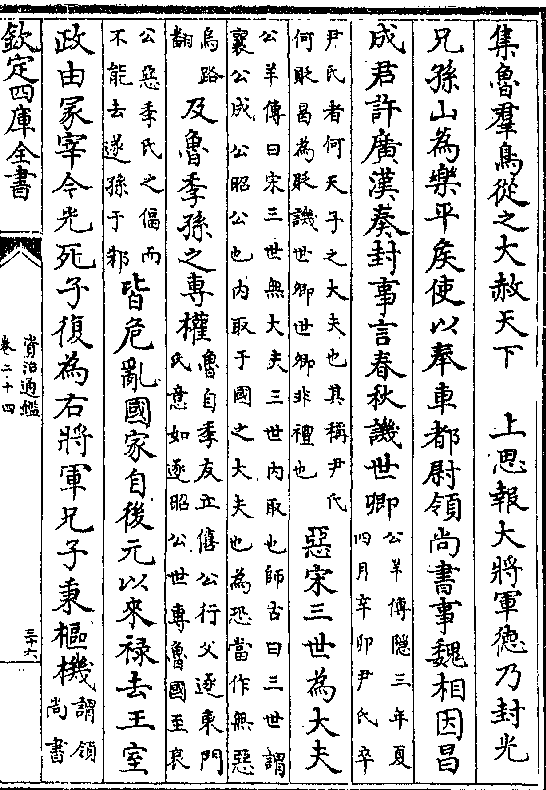 集魯羣鳥從之大赦天下　上思報大將軍德乃封光
兄孫山為樂平矦使以奉車都尉領尚書事魏相因昌
成君許廣漢奏封事言春秋譏世卿
公羊傳隱三年夏
四月辛卯尹氏卒
尹氏者何天子之大夫也其稱尹氏
何貶曷為貶譏世卿世卿非禮也
惡宋三世為大夫
公羊傳曰宋三世無大夫三世內取也師古曰三世謂
襄公成公昭公也內取于國之大夫也為恐當作無惡
烏路
翻
及魯季孫之專權
魯自季友立僖公行父逐東門
氏意如逐昭公世專魯國至哀
公惡季氏之偪而
不能去遂孫于邾
皆危亂國家自後元以來祿去王室
政由冢宰今光死子復為右將軍兄子秉樞機
謂領
尚書
欽定四庫全書
資治通鑑
卷二十四
三十六